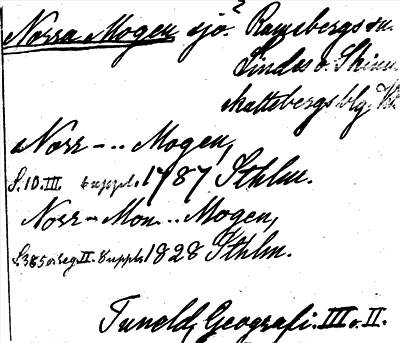 Norra Mogen sjö? Ramsbergs sn.
Lindes o. Skinn-
skattebergs blg. Vb.
Norr - .. Mogen,
S. 10. III. Suppl. 1787 Sthlm.
Norr - Mon .. Mogen,
S. 385 o. reg. II. Suppl. 1828 Sthlm.
Tuneld, Geografi. III o. II.